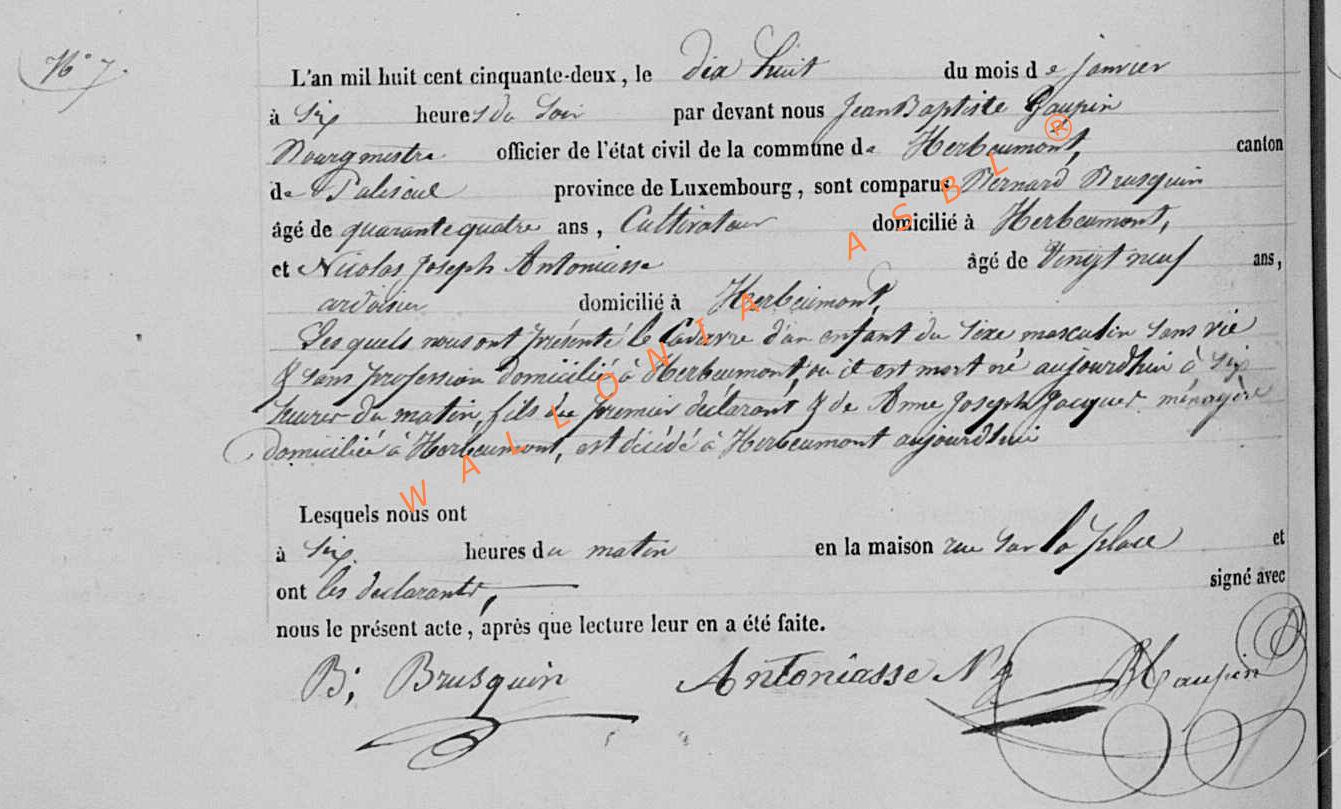 N° 7.
L'an mil huit cent cinquante-deux, le dix huit du mois de janvier
à six heures du Soir par devant nous Jean Baptiste
Bourgmestre officier de l'état civil de la commune de Herbeumont, canton
de Paliseul province de Luxembourg, sont comparus Bernard Brusquin
âgé de quarante quatre ans, Cultivateur domicilié à Herbeumont,
et Nicolas Joseph Antoniasse âgé de Vingt neuf ans,
ardoisier domicilié à Herbeumont,
Lesquels nous ont présenté le Cadavre d'un enfant du sexe masculin sans vie
& sans profession domicilié à Herbeumont, ou il est mort né aujourd'hui à six
heures du matin, fils du premier déclarant & de Anne Joseph Jacques ménagère
domiciliée à Herbeumont, est décédé à Herbeumont aujourd'hui
Lesquels nous ont
à six heures du matin en la maison rue Sur la place et
ont les déclarants, signé avec
nous le présent acte, après que lecture leur en a été faite.
B; Brusquin Antoniasse N J
WALLONIA ASBL ®